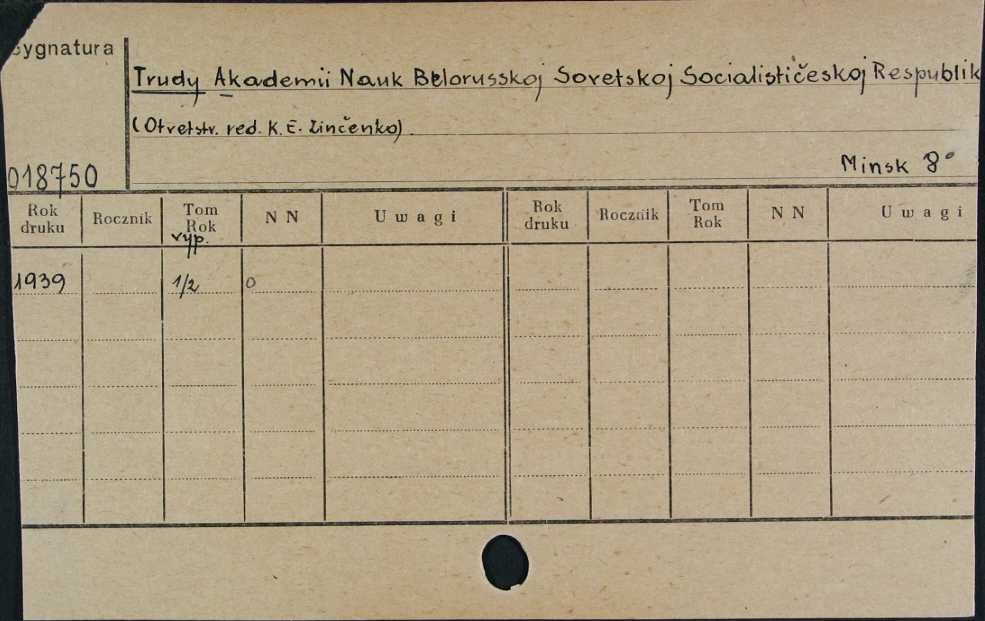 Sygnatura
Trudy Akademii Nauk Belorusskoj Sovetskoj Socialističeskoj Respublik
(Otvetstv. red. K. E. Zinčenko).
018750
Minsk 8°
Rok druku Rocznik Tom Rok N N Uwagi Rok druku Rocznik Tom Rok N N Uwagi
vyp.
1939 1/2 0